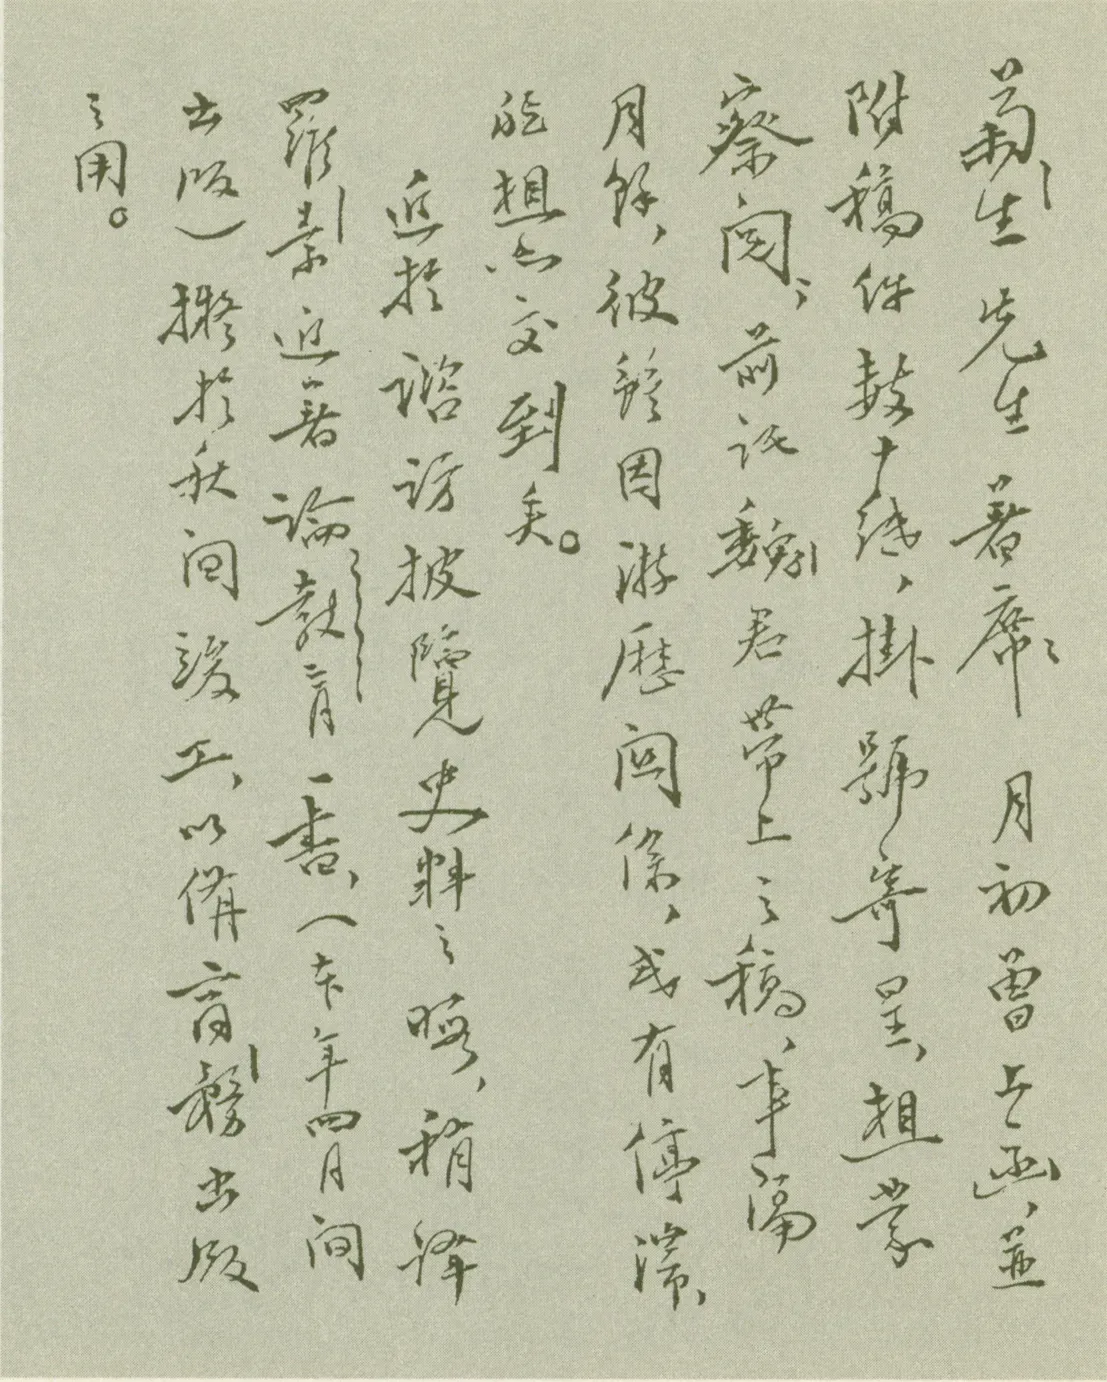 菊生先生著席：月初曾上函，並
附稿件數十紙，掛號寄呈，想蒙
察閱；前託魏君帶上之稿，事隔
月餘，彼雖因游歷關係，或有停滯，
能想亦交到矣。
近於諮訪披覽史料之暇，稍譯
羅素近著論教育一書，（本年四月間
出版）擬於秋間竣工，以備商務出版
之用。